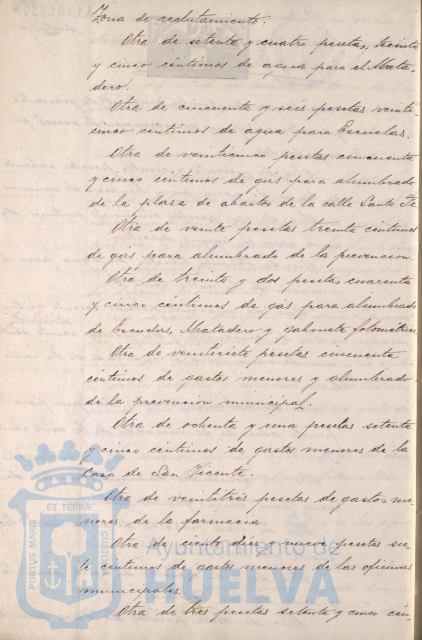 Zona de reclutamiento.
Otra de setenta y cuatro pesetas, treinta
y cinco céntimos de agua para el Mata-
dero.
Otra de cincuenta y seis pesetas veinti-
cinco centimos de agua para Escuelas.
Otra de veinticinco pesetas cincuenta
y cinco céntimos de gas para alumbrado
de la plaza de abastos de la calle Santa Fe
Otra de veinte pesetas treinta céntimos
de gas para alumbrado de la prevencion.
Otra de treinta y dos pesetas cuarenta
y cinco céntimos de gas para alumbrado
de Escuelas, Matadero y gabinete fotometrico
Otra de veintisiete pesetas cincuenta
céntimos de gastos menores y alumbrado
de la prevencion municipal.
Otra de ochenta y una pesetas setenta
y cinco céntimos de gastos menores de la
Casa de San Vicente.
Otra de veintitrés pesetas de gastos me-
nores de la farmacia.
Otra de ciento diez y nueve pesetas sie-
te centimos de gastos menores de las oficinas
municipales.
Otra de tres pesetas setenta y cinco cén-
PORTUS MARIS ET TERRÆ CUSTODIA
Ayuntamiento de
HUELVA